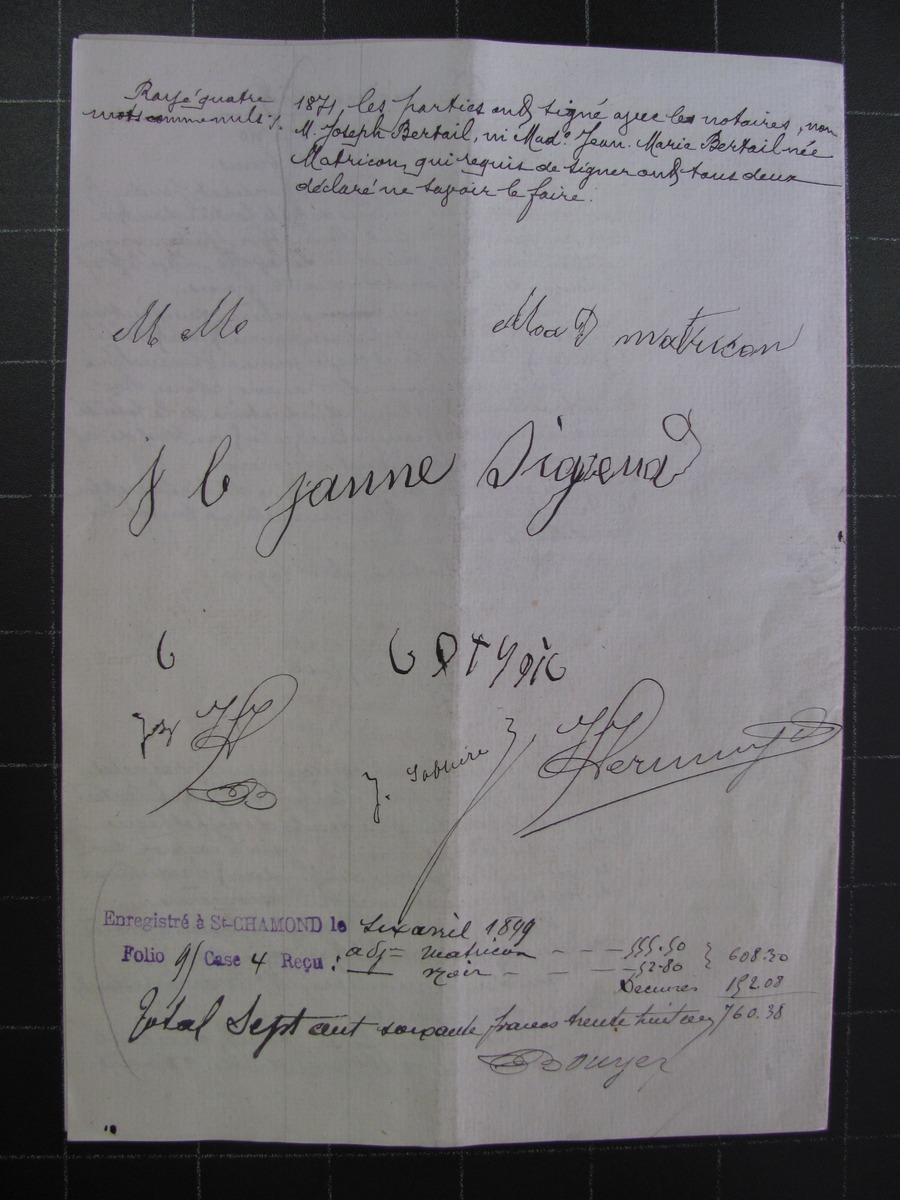 Rayé quatre
mots comme nuls ./.
1871, les parties ont signé avec les notaires, non
M. Joseph Bertail, ni Mad.e Jean-Marie Bertail née
Matricon, qui requis de signer ont tous deux
déclaré ne savoir le faire.
M Mo
matricon
j b janne
6
Enregistré à St-CHAMOND le six avril 1899
Folio 95 Case 4 Reçu : adj= matricon - - - 555.50 } 608.30
— noir - - - 52.80
Décimes 152.08
Total Sept cent soixante francs trente huit c. 760.38